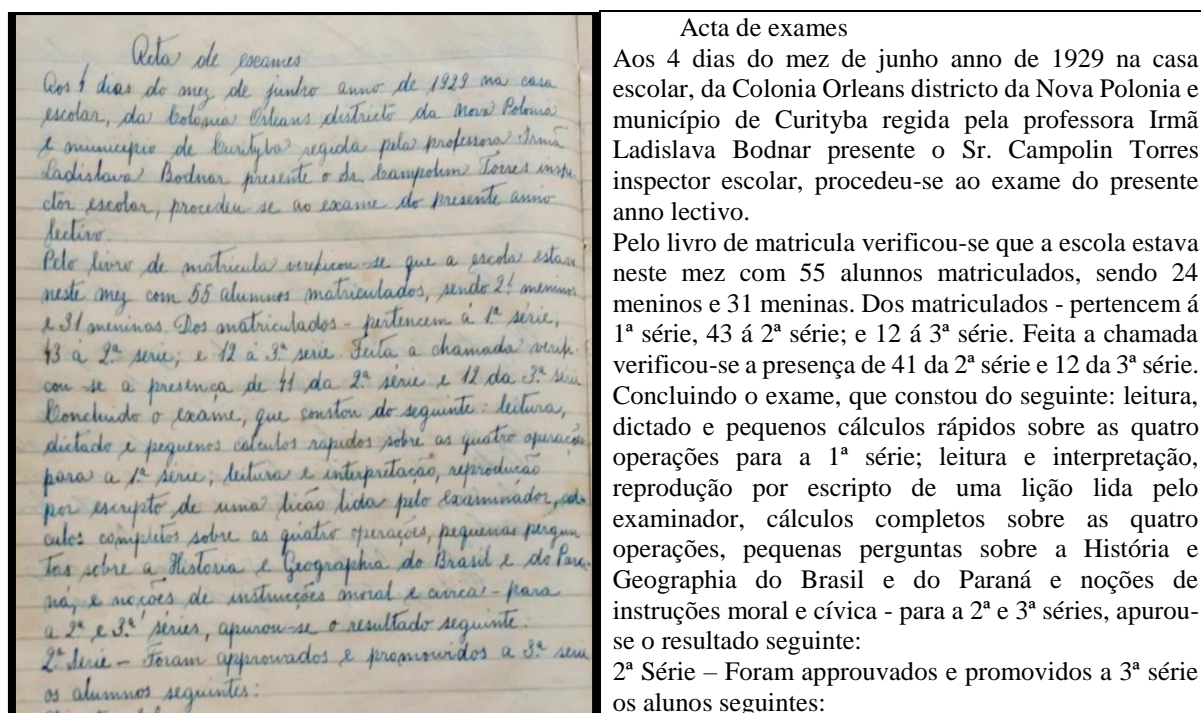 Acta de exames
Aos 4 dias do mez de junho anno de 1929 na casa
escolar, da Colonia Orleans districto da Nova Polonia
e municipio de Curityba regida pela professora Irmã
Ladislava Bodnar presente o Sr. Campolim Torres inspe
ctor escolar, procedeu-se ao exame do presente anno
lectivo.
Pelo livro de matricula verificou-se que a escola estava
neste mez com 55 alumnos matriculados, sendo 24 meninos
e 31 meninas. Dos matriculados - pertencem á 1ª série,
43 á 2ª serie; e 12 á 3ª serie. Feita a chamada verifi
cou-se a presença de 41 da 2ª série e 12 da 3ª série
Concluido o exame, que constou do seguinte: leitura,
dictado e pequenos calculos rapidos sobre as quatro operações
para a 1ª série; leitura e interpretação, reprodução
por escripto de uma lição lida pelo examinador, cal
culos completos sobre as quatro operações, pequenas pergun
tas sobre a Historia e Geographia do Brasil e do Para
ná, e noções de instrucções moral e civica - para
a 2ª e 3ª séries, apurou-se o resultado seguinte:
2ª Serie - Foram approuvados e promouvidos a 3ª serie
os alumnos seguintes:
Acta de exames
Aos 4 dias do mez de junho anno de 1929 na casa
escolar, da Colonia Orleans districto da Nova Polonia e
município de Curityba regida pela professora Irmã
Ladislava Bodnar presente o Sr. Campolin Torres
inspector escolar, procedeu-se ao exame do presente
anno lectivo.
Pelo livro de matricula verificou-se que a escola estava
neste mez com 55 alunnos matriculados, sendo 24
meninos e 31 meninas. Dos matriculados - pertencem á
1ª série, 43 á 2ª série; e 12 á 3ª série. Feita a chamada
verificou-se a presença de 41 da 2ª série e 12 da 3ª série.
Concluindo o exame, que constou do seguinte: leitura,
dictado e pequenos cálculos rápidos sobre as quatro
operações para a 1ª série; leitura e interpretação,
reprodução por escripto de uma lição lida pelo
examinador, cálculos completos sobre as quatro
operações, pequenas perguntas sobre a História e
Geographia do Brasil e do Paraná e noções de
instruções moral e cívica - para a 2ª e 3ª séries, apurou-
se o resultado seguinte:
2ª Série – Foram approuvados e promovidos a 3ª série
os alunos seguintes: